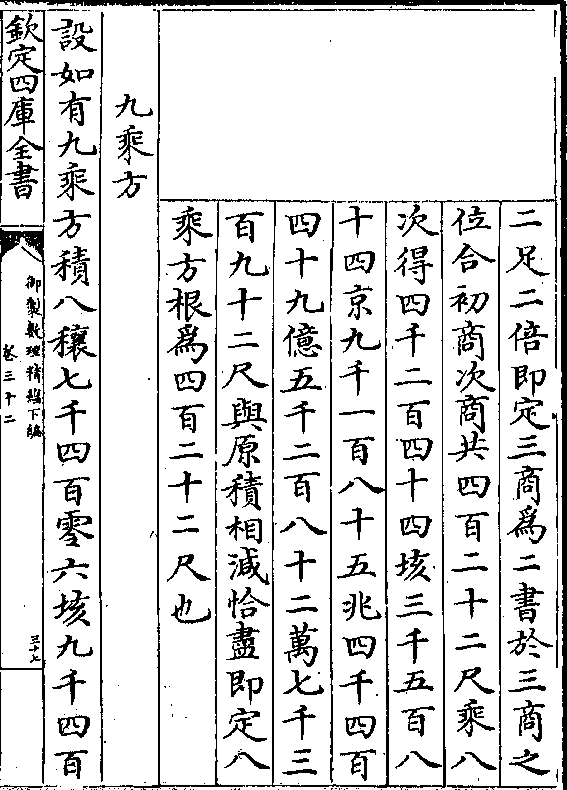 二足二倍即定三商爲二書於三商之
位合初商次商共四百二十二尺乘八
次得四千二百四十四垓三千五百八
十四京九千一百八十五兆四千四百
四十九億五千二百八十二萬七千三
百九十二尺與原積相減恰盡即定八
乘方根爲四百二十二尺也
九乘方
設如有九乘方積八穰七千四百零六垓九千四百
欽定四庫全書
御製數理精蘊下編
卷三十二
三十七